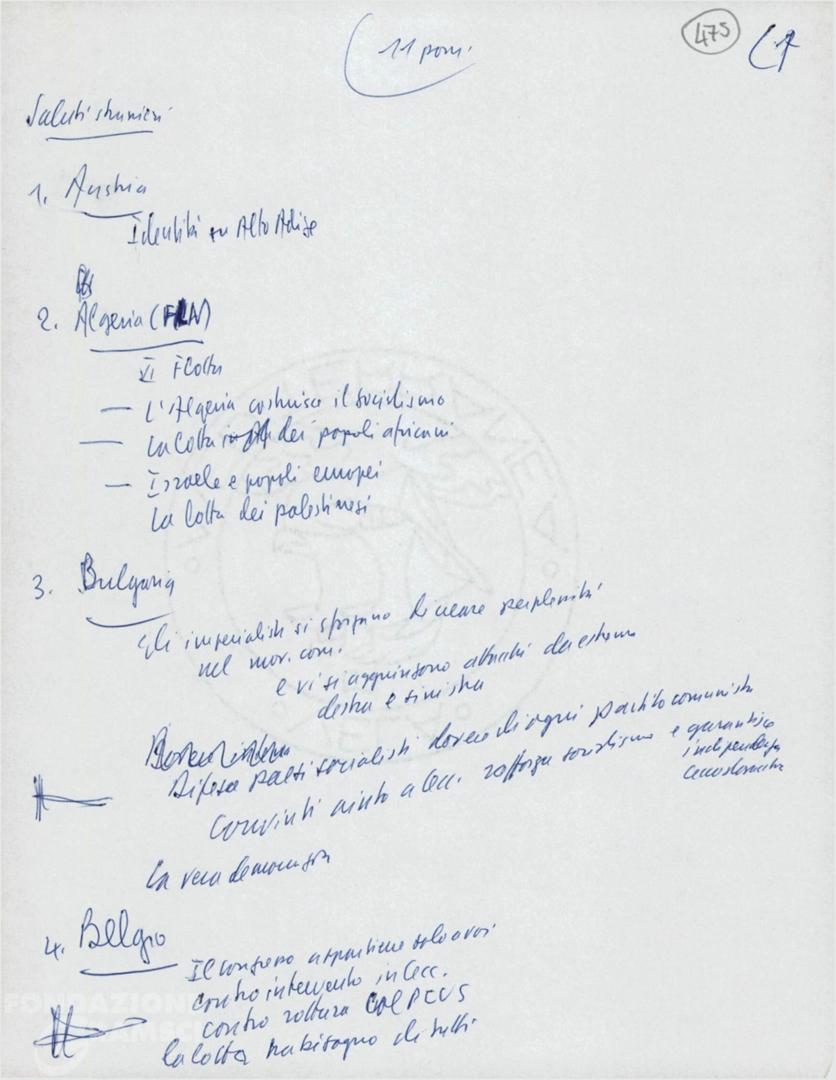 11 pom.
475
(1
Saluti stranieri
1. Austria
Identità su Alto Adige
2. Algeria (FLN)
VI Flotta
— L'Algeria costruisce il socialismo
— La lotta dei popoli africani
— Israele e popoli europei
La lotta dei palestinesi
3. Bulgaria
Gli imperialisti si sforzano di creare perplessità
nel mov. com.
e vi si aggiungono attacchi da estrema
destra e sinistra
Difesa paesi socialisti dovere di ogni partito comunista
Convinti aiuto a Cec. rafforza socialismo e garantisce
indipendenza
Cecoslovacchia
La vera democrazia
4. Belgio
Il congresso appartiene solo a voi
contro intervento in Cec.
contro rottura col PCUS
la lotta ha bisogno di tutti
FONDAZIONE